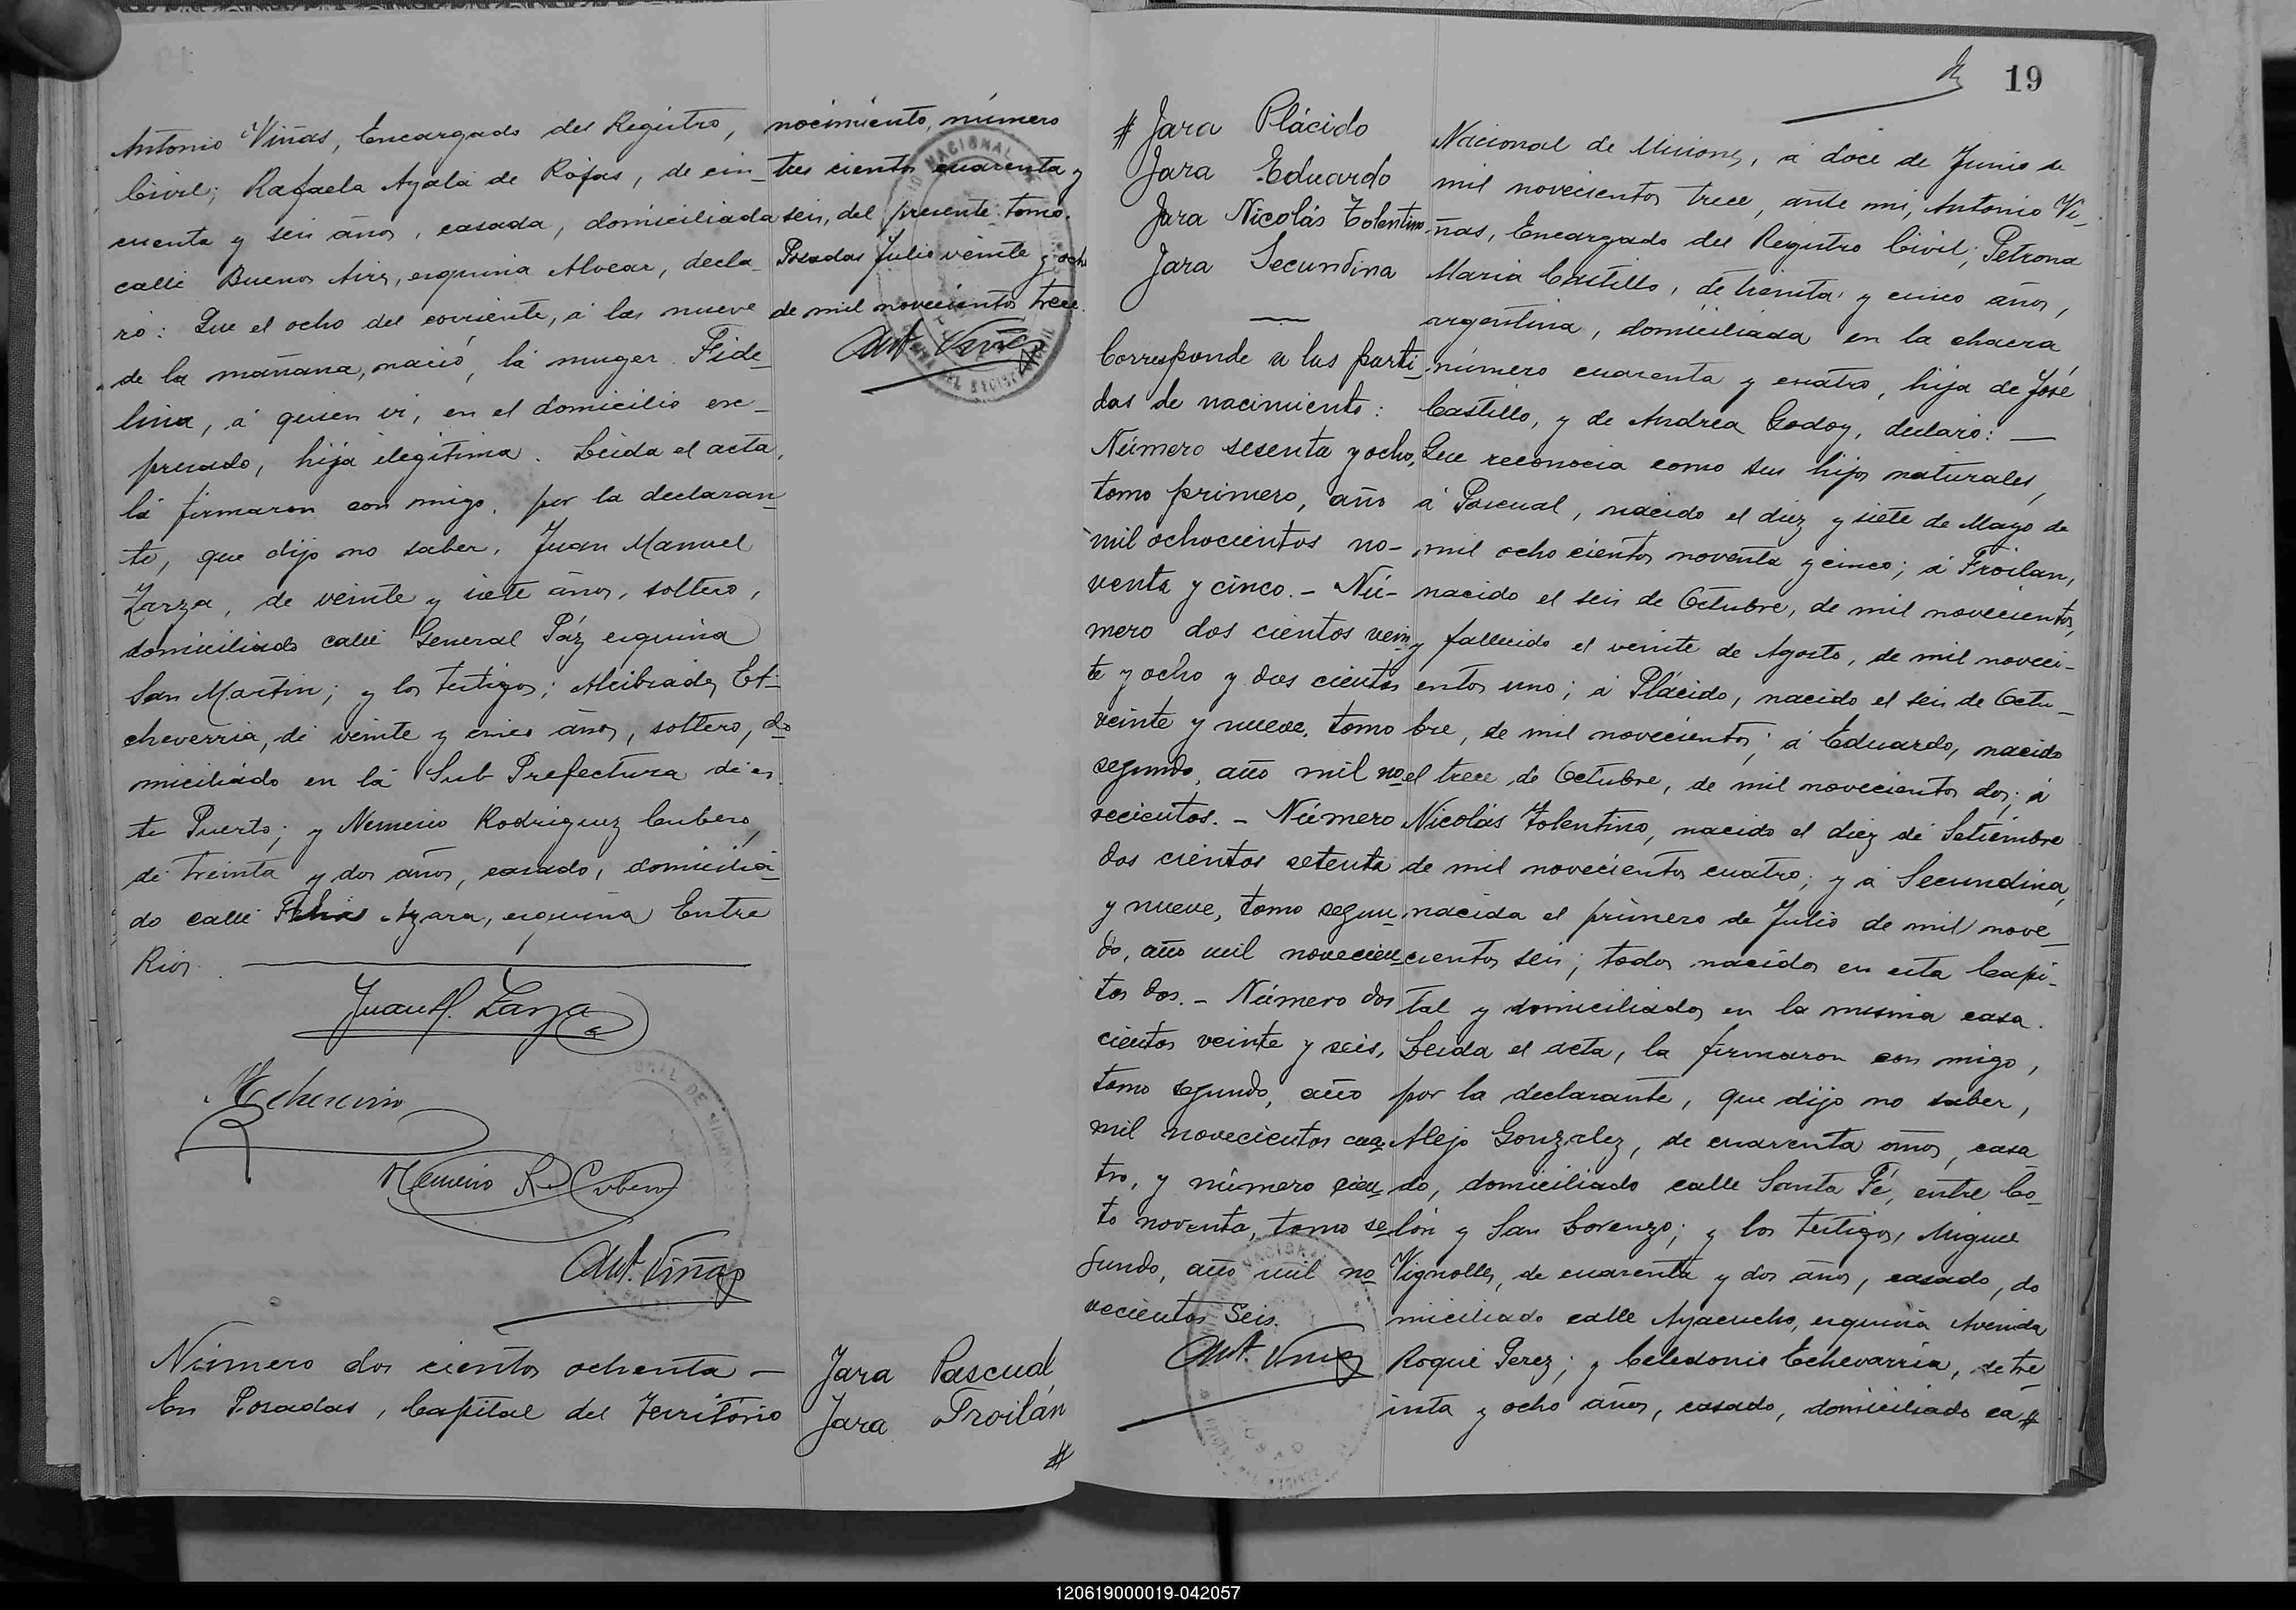 Antonio Viñas, Encargado del Registro,
Civil; Rafaela Ayala de Rojas, de cin-
cuenta y seis años, casada, domiciliada
calle Buenos Aires, esquina Alvear, decla-
ró: Que el ocho del corriente, á las nueve
de la mañana, nació, la muger Fide-
lina, á quien vi, en el domicilio ex-
presado, hija ilegitima. Leida el acta,
la firmaron con migo, por la declaran-
te, que dijo no saber, Juan Manuel
Zarza, de veinte y siete años, soltero,
domiciliado calle General Páz esquina
San Martin; y los testigos; Alcibiades Et-
cheverria, de veinte y cinco años, soltero, do
miciliado en la Sub Prefectura de es
te Puerto; y Nemecio Rodriguez Cubero,
de treinta y dos años, casado, domicilia-
do calle Felix Azara, esquina Entre
Rios.
Juan M. Zarza
Echeverria
Nemecio R. Cubero
Ant. Viñas
Número dos cientos ochenta —
En Posadas, Capital del Territorio
nocimiento, número
tres cientos cuarenta y
seis, del presente tomo.
Posadas Julio veinte y ocho
de mil novecientos trece.
Ant. Viñas
Jara Pascual
Jara Froilán
#
19
# Jara Plácido
Jara Eduardo
Jara Nicolás Tolentino
Jara Secundina
Corresponde a las parti-
das de nacimiento:
Número sesenta y ocho,
tomo primero, año
mil ochocientos no-
venta y cinco. - Nú-
mero dos cientos vein
te y ocho y dos cientos
veinte y nueve, tomo
segundo, año mil no
vecientos. - Número
dos cientos setenta
y nueve, tomo segun-
do, año mil novecien-
tos dos. - Número dos
cientos veinte y seis,
tomo segundo, año
mil novecientos cua-
tro, y número cien-
to noventa, tomo se-
gundo, año mil no
vecientos Seis.
Ant. Viñas
Nacional de Misiones, á doce de Junio de
mil novecientos trece, ante mi, Antonio Vi-
ñas, Encargado del Registro Civil; Petrona
Maria Castillo, de treinta y cinco años,
argentina, domiciliada en la chacra
número cuarenta y cuatro, hija de José
Castillo, y de Andrea Godoy, declaró: —
Que reconocia como sus hijos naturales,
á Pascual, nacido el diez y siete de Mayo de
mil ocho cientos noventa y cinco; á Froilan,
nacido el seis de Octubre, de mil novecientos,
y fallecido el veinte de Agosto, de mil noveci-
entos uno; á Plácido, nacido el seis de Octu-
bre, de mil novecientos; á Eduardo, nacido
el trece de Octubre, de mil novecientos dos; á
Nicolás Tolentino, nacido el diez de Setiembre
de mil novecientos cuatro; y á Secundina,
nacida el primero de Julio de mil nove-
cientos seis; todos nacidos en esta Capi-
tal y domiciliados en la misma casa.
Leida el acta, la firmaron con migo,
por la declarante, que dijo no saber,
Alejo Gonzalez, de cuarenta años, casa
do, domiciliado calle Santa Fé, entre Co-
lón y San Lorenzo; y los testigos, Miguel
Vignolles, de cuarenta y dos años, casado, do
miciliado calle Ayacucho, esquina Avenida
Roque Perez; y Celedonio Echevarria, de tre
inta y ocho años, casado, domiciliado ca#
120619000019-042057